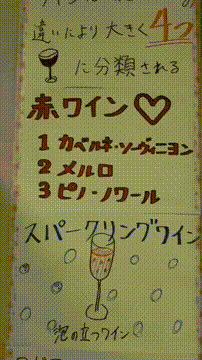 違いにより大きく4つ
に分類される
赤ワイン♡
1 カベルネ・ソーヴィニヨン
2 メルロ
3 ピノ・ノワール
スパークリングワイン
泡の立つワイン